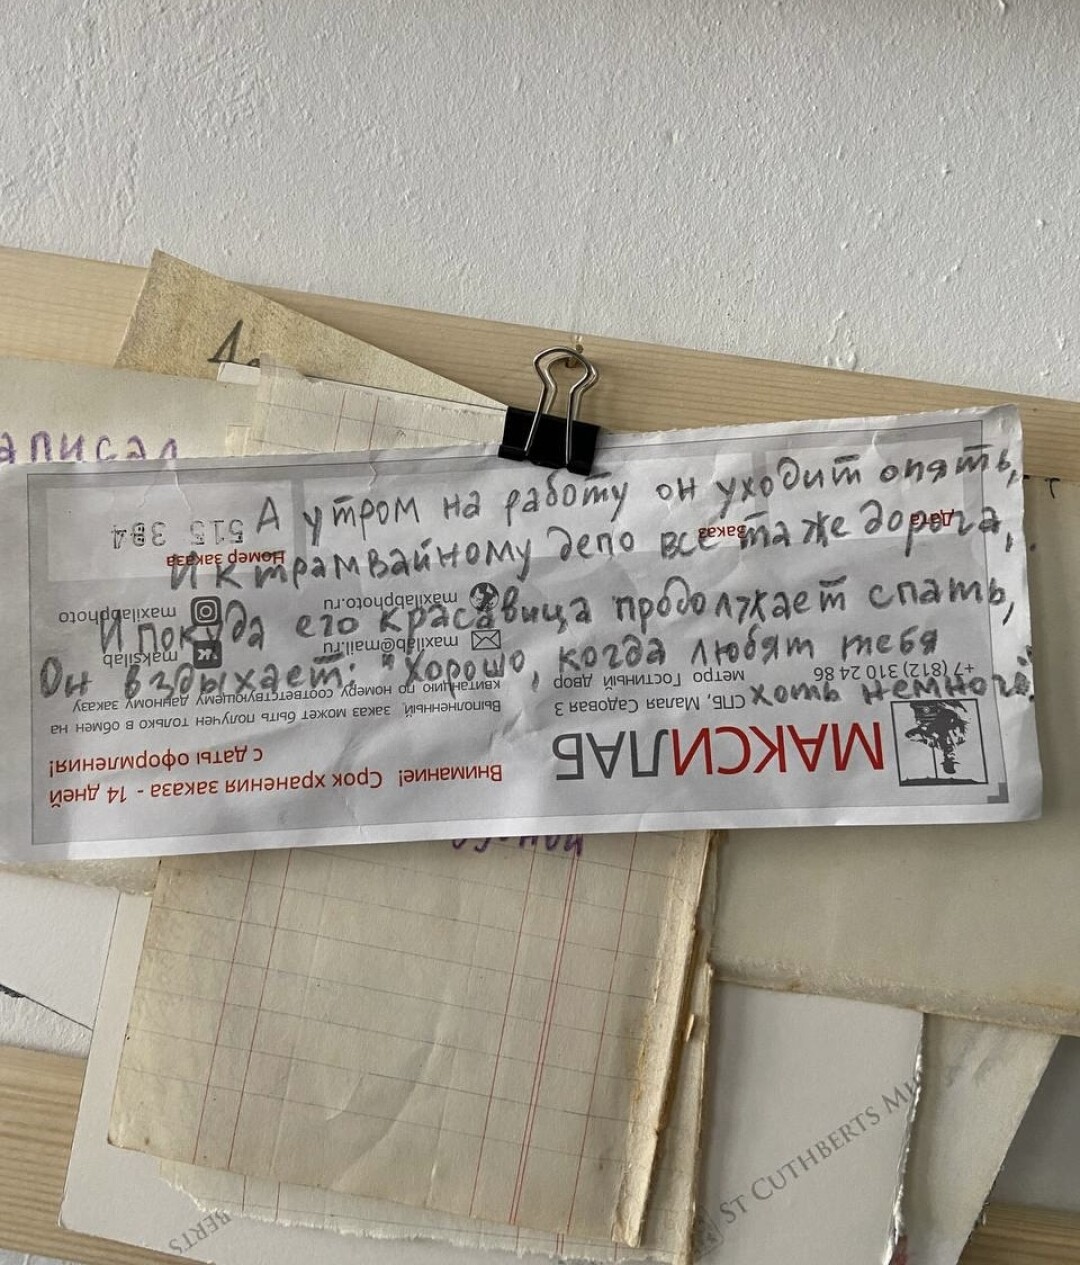 аписал
А утром на работу он уходит опять,
И к трамвайному депо все та же дорога,
И покуда его красавица продолжает спать,
Он вздыхает: "Хорошо, когда любят тебя
хоть немного."
515 384
Номер заказа
заказ
Дата
maxilabphoto
maksilab
maxilabphoto.ru
maxilab@mail.ru
+7 (812) 310 24 86
метро Гостиный двор
СПБ, Малая Садовая 3
МАКСИЛАБ
Выполненный, заказ может быть получен только в обмен на
квитанцию по номеру соответствующему данному заказу
Внимание! Срок хранения заказа - 14 дней
с даты оформления!
ST CUTHBERTS
BERTS